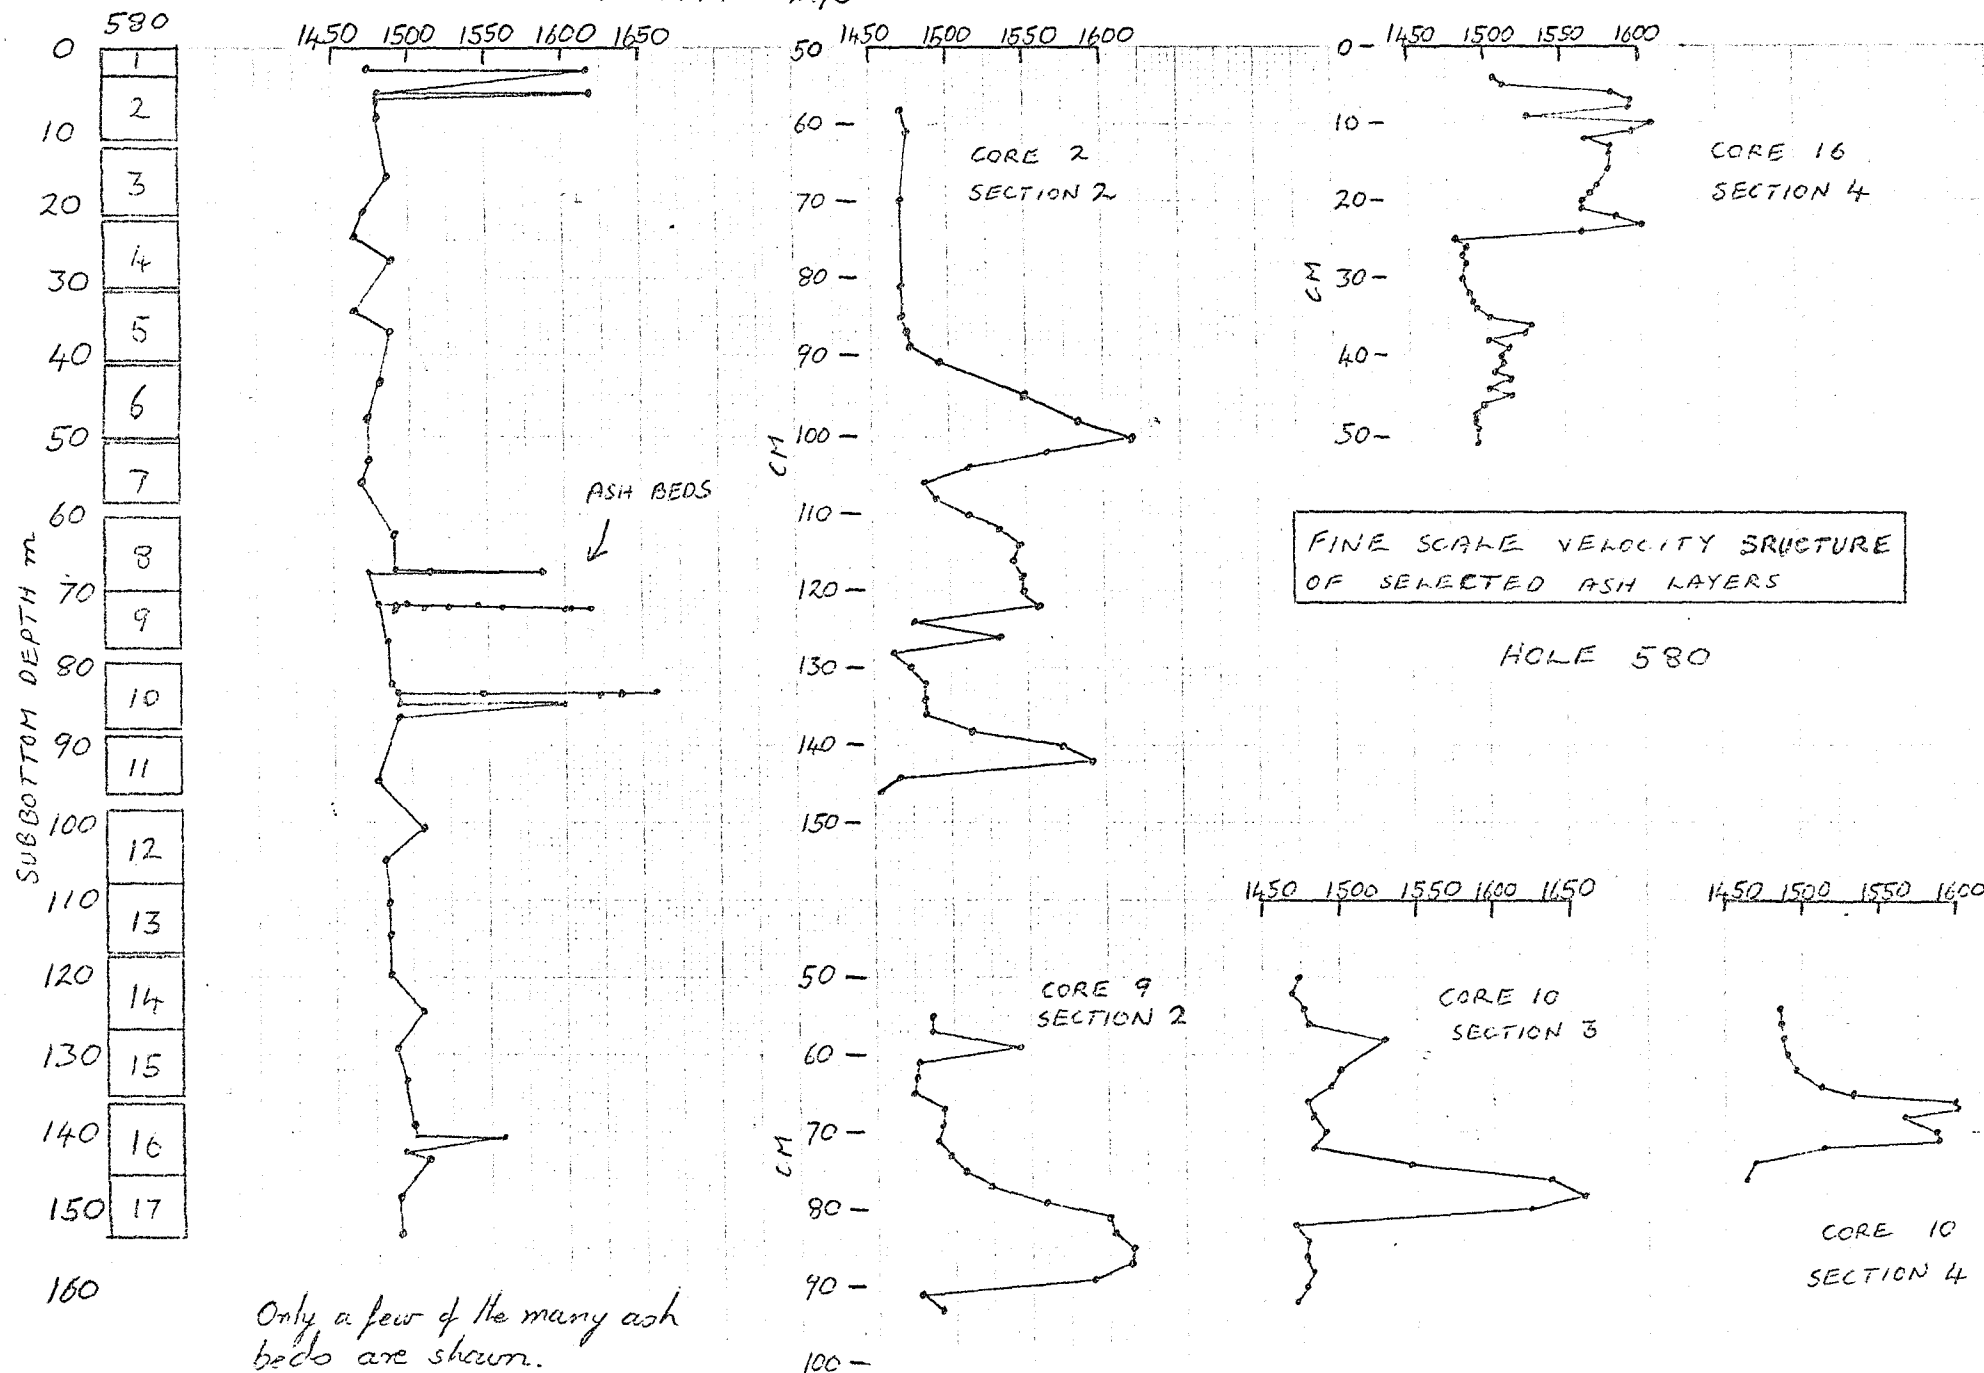 580
SUBBOTTOM DEPTH m
0
10
20
30
40
50
60
70
80
90
100
110
120
130
140
150
160
1
2
3
4
5
6
7
8
9
10
11
12
13
14
15
16
17
1450 1500 1550 1600 1650
ASH BEDS
Only a few of the many ash
beds are shown.
1450 1500 1550 1600
50
60
70
80
90
100
110
120
130
140
150
CM
CORE 2
SECTION 2
1450 1500 1550 1600
0
10
20
30
40
50
CM
CORE 16
SECTION 4
FINE SCALE VELOCITY SRUCTURE
OF SELECTED ASH LAYERS
HOLE 580
50
60
70
80
90
100
CM
CORE 9
SECTION 2
1450 1500 1550 1600 1650
CORE 10
SECTION 3
1450 1500 1550 1600
CORE 10
SECTION 4